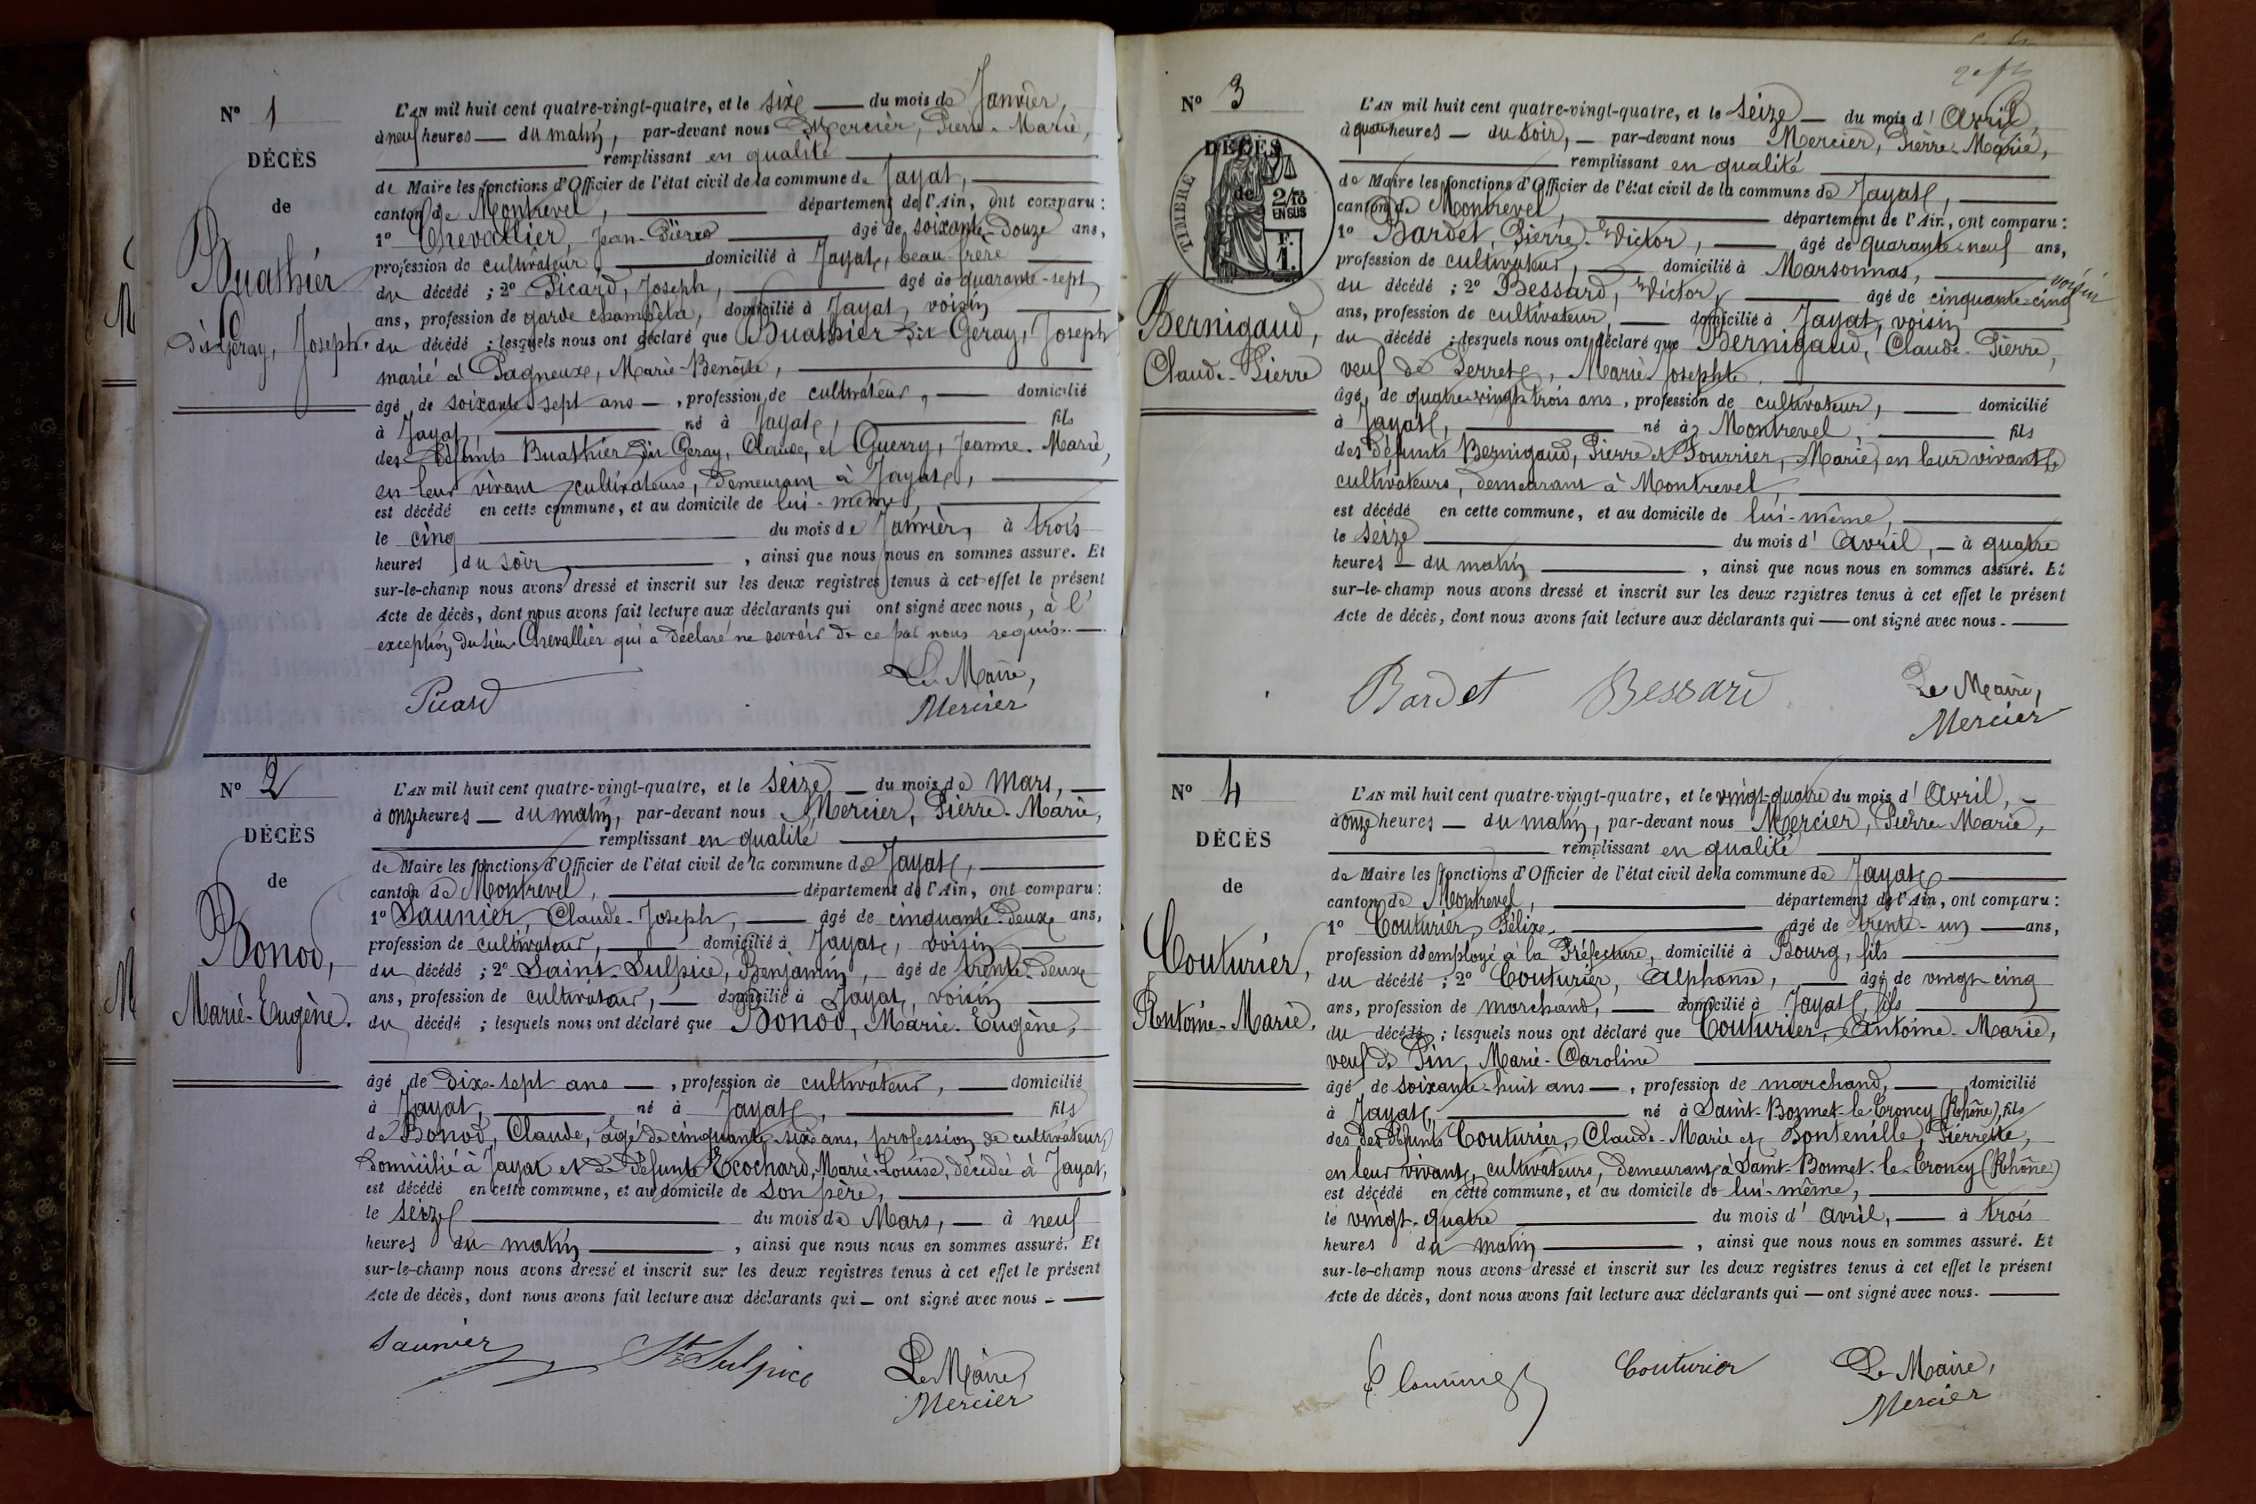 N° 1
DÉCÈS
de
Buathier
dit Geray, Joseph.
L'AN mil huit cent quatre-vingt-quatre, et le six du mois de Janvier,
à neuf heures du matin, par-devant nous Mercier, Pierre-Marie,
remplissant en qualité
de Maire les fonctions d'Officier de l'état civil de la commune de Jayat,
canton de Montrevel, département de l'Ain, ont comparu :
1° Chevallier, Jean-Pierre âgé de soixante-douze ans,
profession de cultivateur, domicilié à Jayat, beau-frère
du décédé ; 2° Picard, Joseph, âgé de quarante-sept
ans, profession de garde champêtre, domicilié à Jayat, voisin
du décédé ; lesquels nous ont déclaré que Buathier dit Geray, Joseph
marié à Pagneux, Marie-Benoîte,
âgé de soixante sept ans, profession de cultivateur, domicilié
à Jayat, né à Jayat, fils
des défunts Buathier dit Geray, Claude, et Guerry, Jeanne-Marie,
en leur vivant cultivateurs, demeurant à Jayat,
est décédé en cette commune, et au domicile de lui-même,
le cinq du mois de Janvier, à trois
heures du soir, ainsi que nous nous en sommes assuré. Et
sur-le-champ nous avons dressé et inscrit sur les deux registres tenus à cet effet le présent
Acte de décès, dont nous avons fait lecture aux déclarants qui ont signé avec nous, à l'
exception du sieur Chevallier qui a déclaré ne savoir de ce par nous requis.
Picard
Le Maire,
Mercier
N° 2
DÉCÈS
de
Bonod,
Marie-Eugène.
L'AN mil huit cent quatre-vingt-quatre, et le seize du mois de Mars,
à onze heures du matin, par-devant nous Mercier, Pierre-Marie,
remplissant en qualité
de Maire les fonctions d'Officier de l'état civil de la commune de Jayat,
canton de Montrevel, département de l'Ain, ont comparu :
1° Saunier, Claude-Joseph, âgé de cinquante-deux ans,
profession de cultivateur, domicilié à Jayat, voisin
du décédé ; 2° Saint-Sulpice, Benjamin, âgé de trente-deux
ans, profession de cultivateur, domicilié à Jayat, voisin
du décédé ; lesquels nous ont déclaré que Bonod, Marie-Eugène,
âgé de dix-sept ans, profession de cultivateur, domicilié
à Jayat, né à Jayat, fils
de Bonod, Claude, âgé de cinquante-six ans, profession de cultivateur,
domicilié à Jayat et de défunte Ecochard, Marie-Louise, décédée à Jayat,
est décédé en cette commune, et au domicile de son père,
le seize du mois de Mars, à neuf
heures du matin, ainsi que nous nous en sommes assuré. Et
sur-le-champ nous avons dressé et inscrit sur les deux registres tenus à cet effet le présent
Acte de décès, dont nous avons fait lecture aux déclarants qui ont signé avec nous.
Saunier
St Sulpice
Le Maire,
Mercier
N° 3
DÉCÈS
de
TIMBRE
2/10
EN SUS
Bernigaud,
Claude-Pierre
L'AN mil huit cent quatre-vingt-quatre, et le seize du mois d'Avril,
à quatre heures du soir, par-devant nous Mercier, Pierre-Marie,
remplissant en qualité
de Maire les fonctions d'Officier de l'état civil de la commune de Jayat,
canton de Montrevel, département de l'Ain, ont comparu :
1° Bardet, Pierre-Victor, âgé de quarante-neuf ans,
profession de cultivateur, domicilié à Marsonnas, voisin
du décédé ; 2° Bessard, Victor, âgé de cinquante-cinq
ans, profession de cultivateur, domicilié à Jayat, voisin
du décédé ; lesquels nous ont déclaré que Bernigaud, Claude-Pierre,
veuf de Perret, Marie-Josephte,
âgé de quatre-vingt-trois ans, profession de cultivateur, domicilié
à Jayat, né à Montrevel, fils
des défunts Bernigaud, Pierre et Fourrier, Marie, en leur vivant
cultivateurs, demeurant à Montrevel,
est décédé en cette commune, et au domicile de lui-même,
le seize du mois d'Avril, à quatre
heures du matin, ainsi que nous nous en sommes assuré. Et
sur-le-champ nous avons dressé et inscrit sur les deux registres tenus à cet effet le présent
Acte de décès, dont nous avons fait lecture aux déclarants qui ont signé avec nous.
Bardet
Bessard
Le Maire,
Mercier
N° 4
DÉCÈS
de
Couturier,
Antoine-Marie.
L'AN mil huit cent quatre-vingt-quatre, et le vingt-quatre du mois d'Avril,
à onze heures du matin, par-devant nous Mercier, Pierre-Marie,
remplissant en qualité
de Maire les fonctions d'Officier de l'état civil de la commune de Jayat
canton de Montrevel, département de l'Ain, ont comparu :
1° Couturier, Félix, âgé de trente-un ans,
profession d'employé à la Préfecture, domicilié à Bourg, fils
du décédé ; 2° Couturier, Alphonse, âgé de vingt-cinq
ans, profession de marchand, domicilié à Jayat, fils
du décédé ; lesquels nous ont déclaré que Couturier, Antoine-Marie,
veuf de Pin, Marie-Caroline
âgé de soixante-huit ans, profession de marchand, domicilié
à Jayat, né à Saint-Bonnet-le-Troncy (Rhône), fils
des défunts Couturier, Claude-Marie et Bontenille, Pierrette,
en leur vivant, cultivateurs, demeurant à Saint-Bonnet-le-Troncy (Rhône)
est décédé en cette commune, et au domicile de lui-même,
le vingt-quatre du mois d'avril, à trois
heures du matin, ainsi que nous nous en sommes assuré. Et
sur-le-champ nous avons dressé et inscrit sur les deux registres tenus à cet effet le présent
Acte de décès, dont nous avons fait lecture aux déclarants qui ont signé avec nous.
Couturier
Le Maire,
Mercier